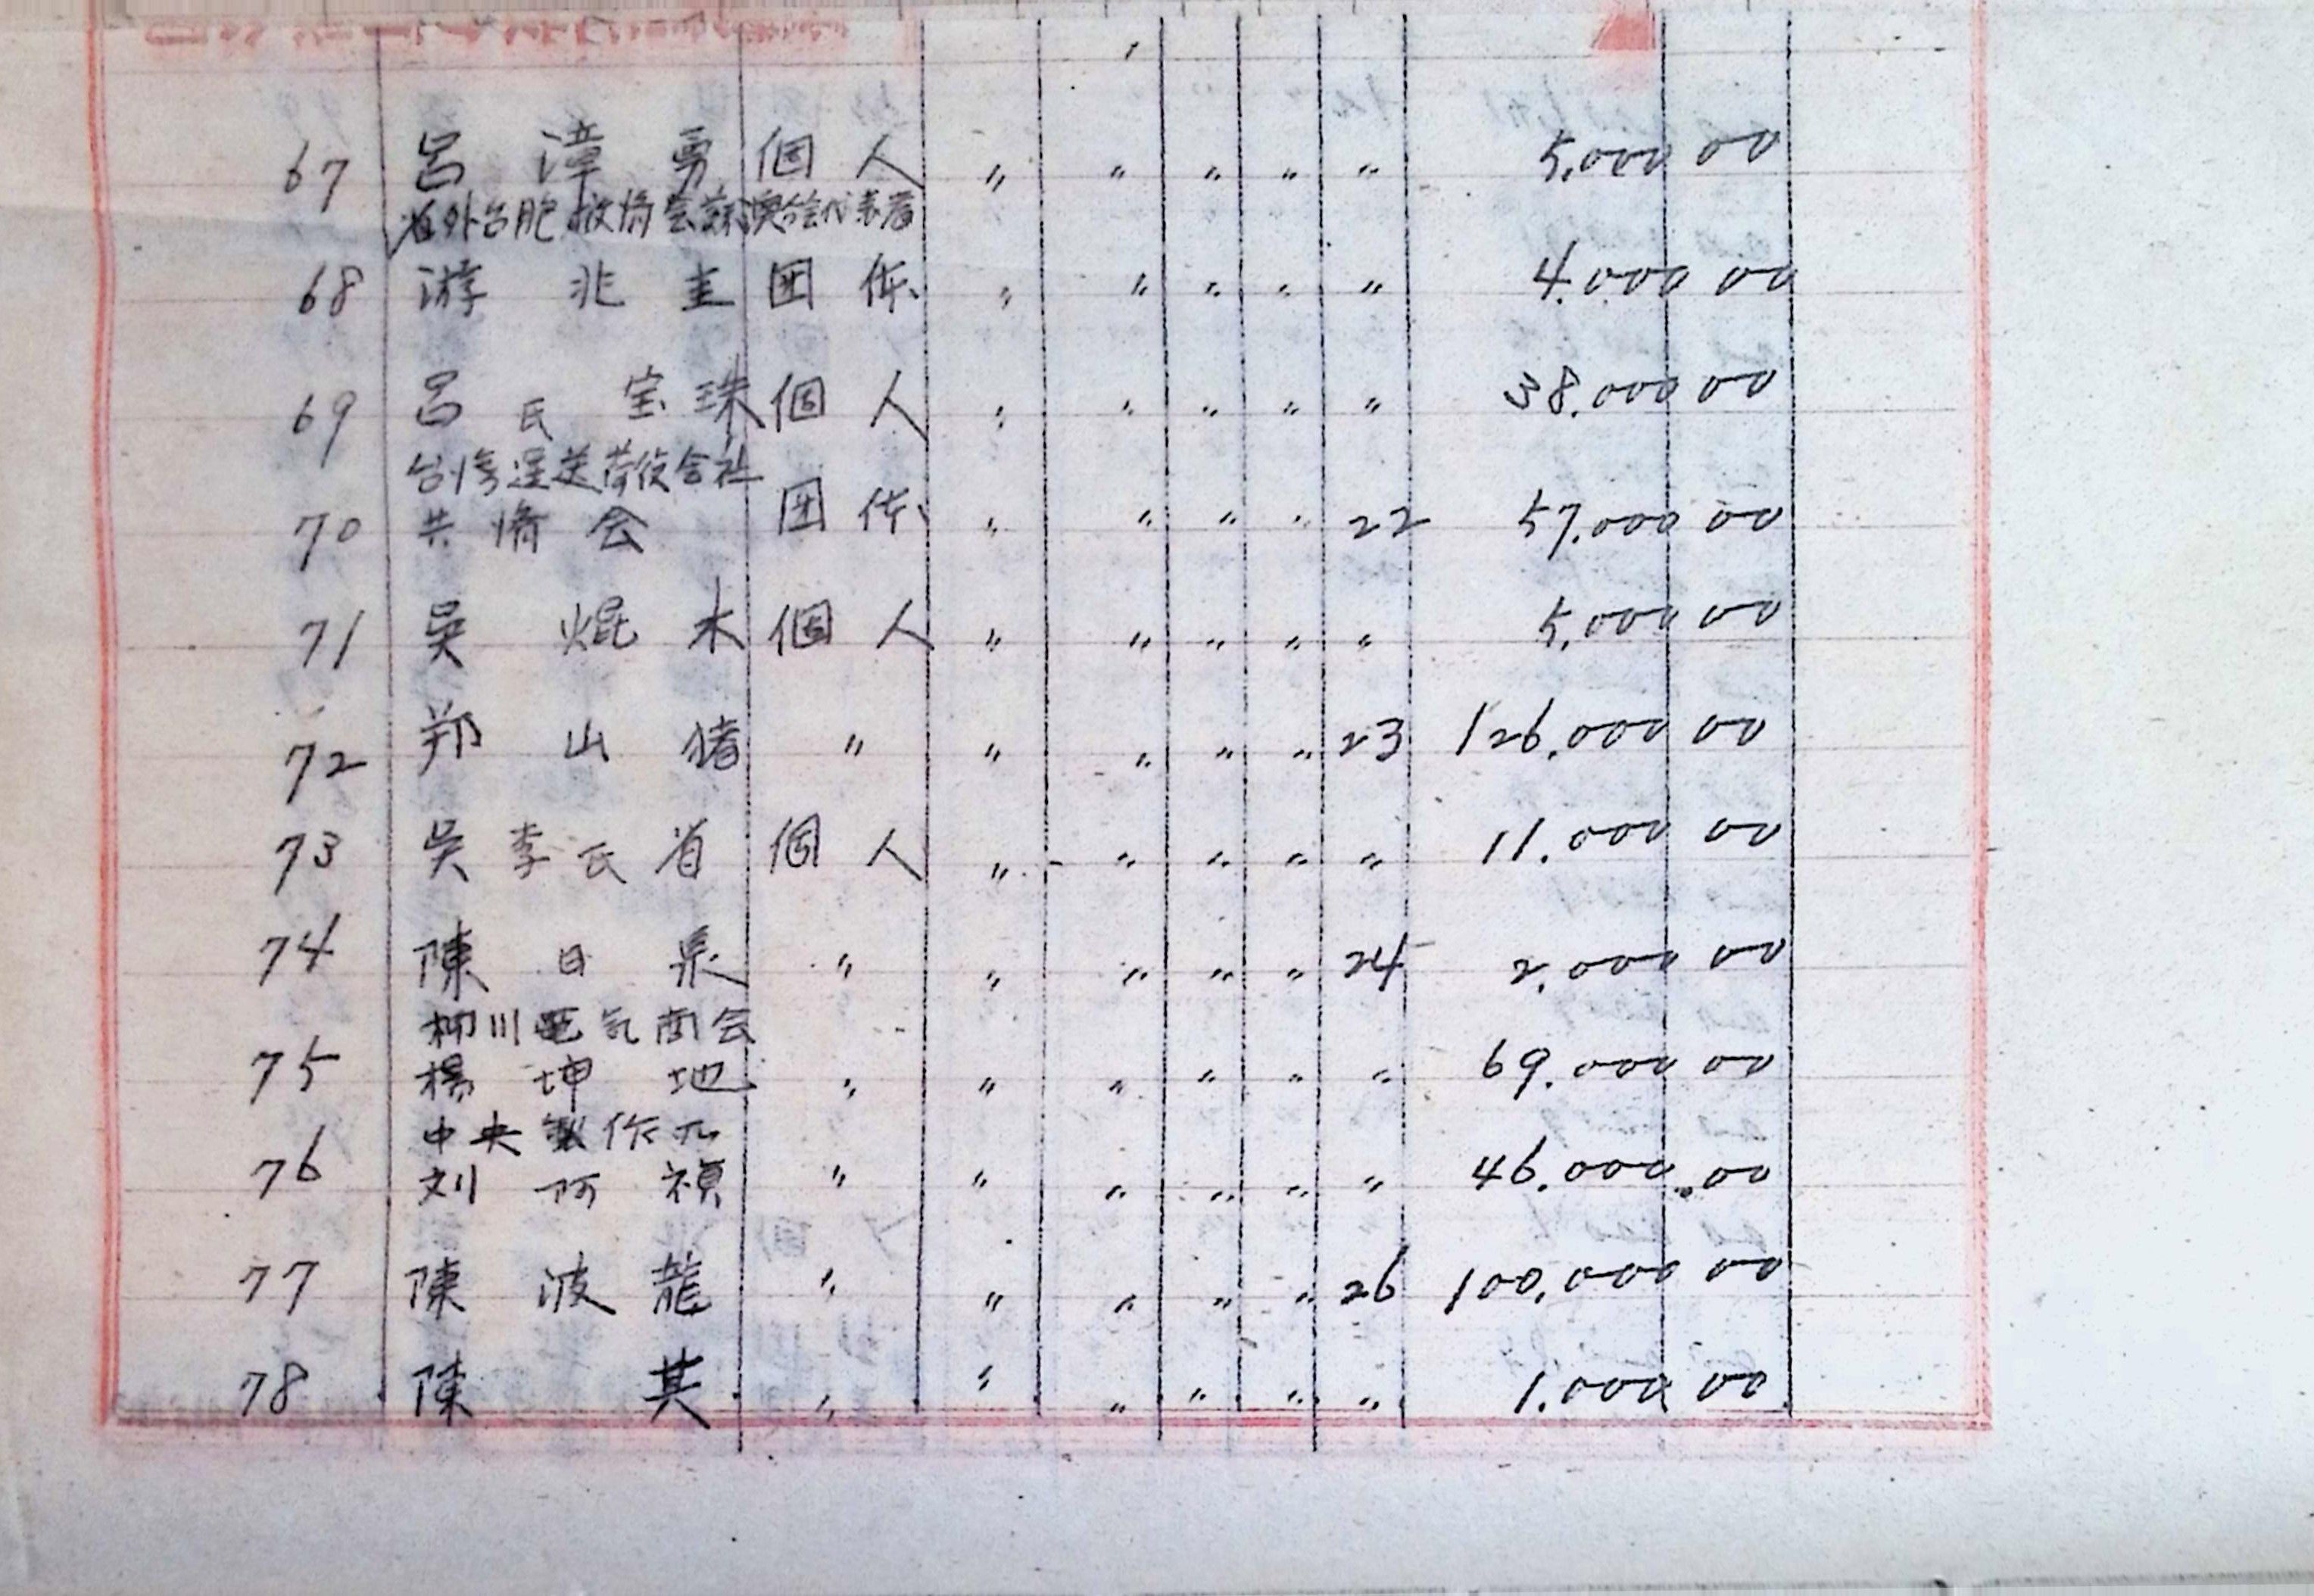 67 呂漳勇 個人 〃 〃 〃 〃 〃 5.000 00
省外台胞救濟会蘇澳分会代表者
68 游兆圭 団体 〃 〃 〃 〃 〃 4.000 00
69 呂氏宝珠 個人 〃 〃 〃 〃 〃 38.000 00
台湾運送荷役会社
70 共濟会 団体 〃 〃 〃 〃 22 57.000 00
71 吳焜木 個人 〃 〃 〃 〃 〃 5.000 00
72 郑山猪 〃 〃 〃 〃 〃 23 126.000 00
73 吳李氏省 個人 〃 〃 〃 〃 〃 11.000 00
74 陳日泉 〃 〃 〃 〃 〃 24 2.000 00
柳川電気商会
75 楊坤地 〃 〃 〃 〃 〃 〃 69.000 00
中央製作所
76 刘阿禎 〃 〃 〃 〃 〃 〃 46.000.00
77 陳波龍 〃 〃 〃 〃 〃 26 100.000 00
78 陳其 〃 〃 〃 〃 〃 〃 1.000 00